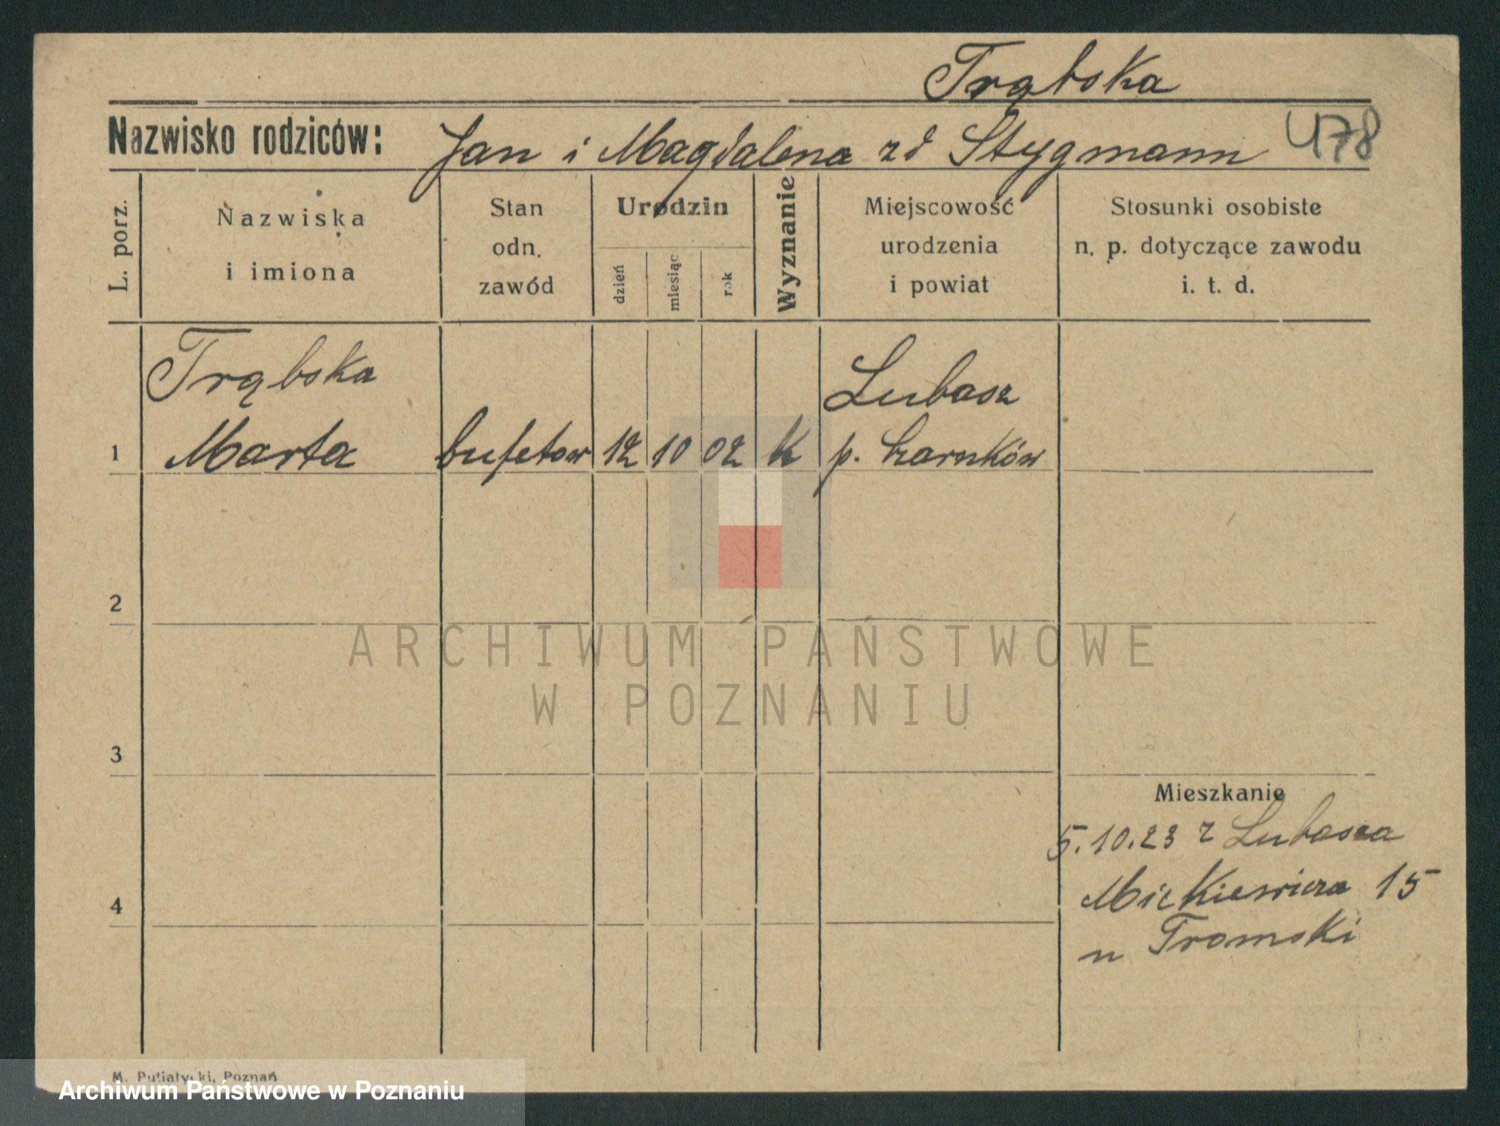 Trąbska
Nazwisko rodziców: Jan i Magdalena zd Stygmann 478
L. porz.
Nazwiska
i imiona
Stan
odn.
zawód
Urodzin
dzień
miesiąc
rok
Wyznanie
Miejscowość
urodzenia
i powiat
Stosunki osobiste
n. p. dotyczące zawodu
i. t. d.
Trąbska
Lubasz
1 Marta bufetow 12 10 02 k p. Czarnków
2
ARCHIWUM PAŃSTWOWE
W POZNANIU
3
Mieszkanie
5.10.23 z Lubasza
4 Mickiewicza 15
u Tromski
M. Putiatycki, Poznań
Archiwum Państwowe w Poznaniu